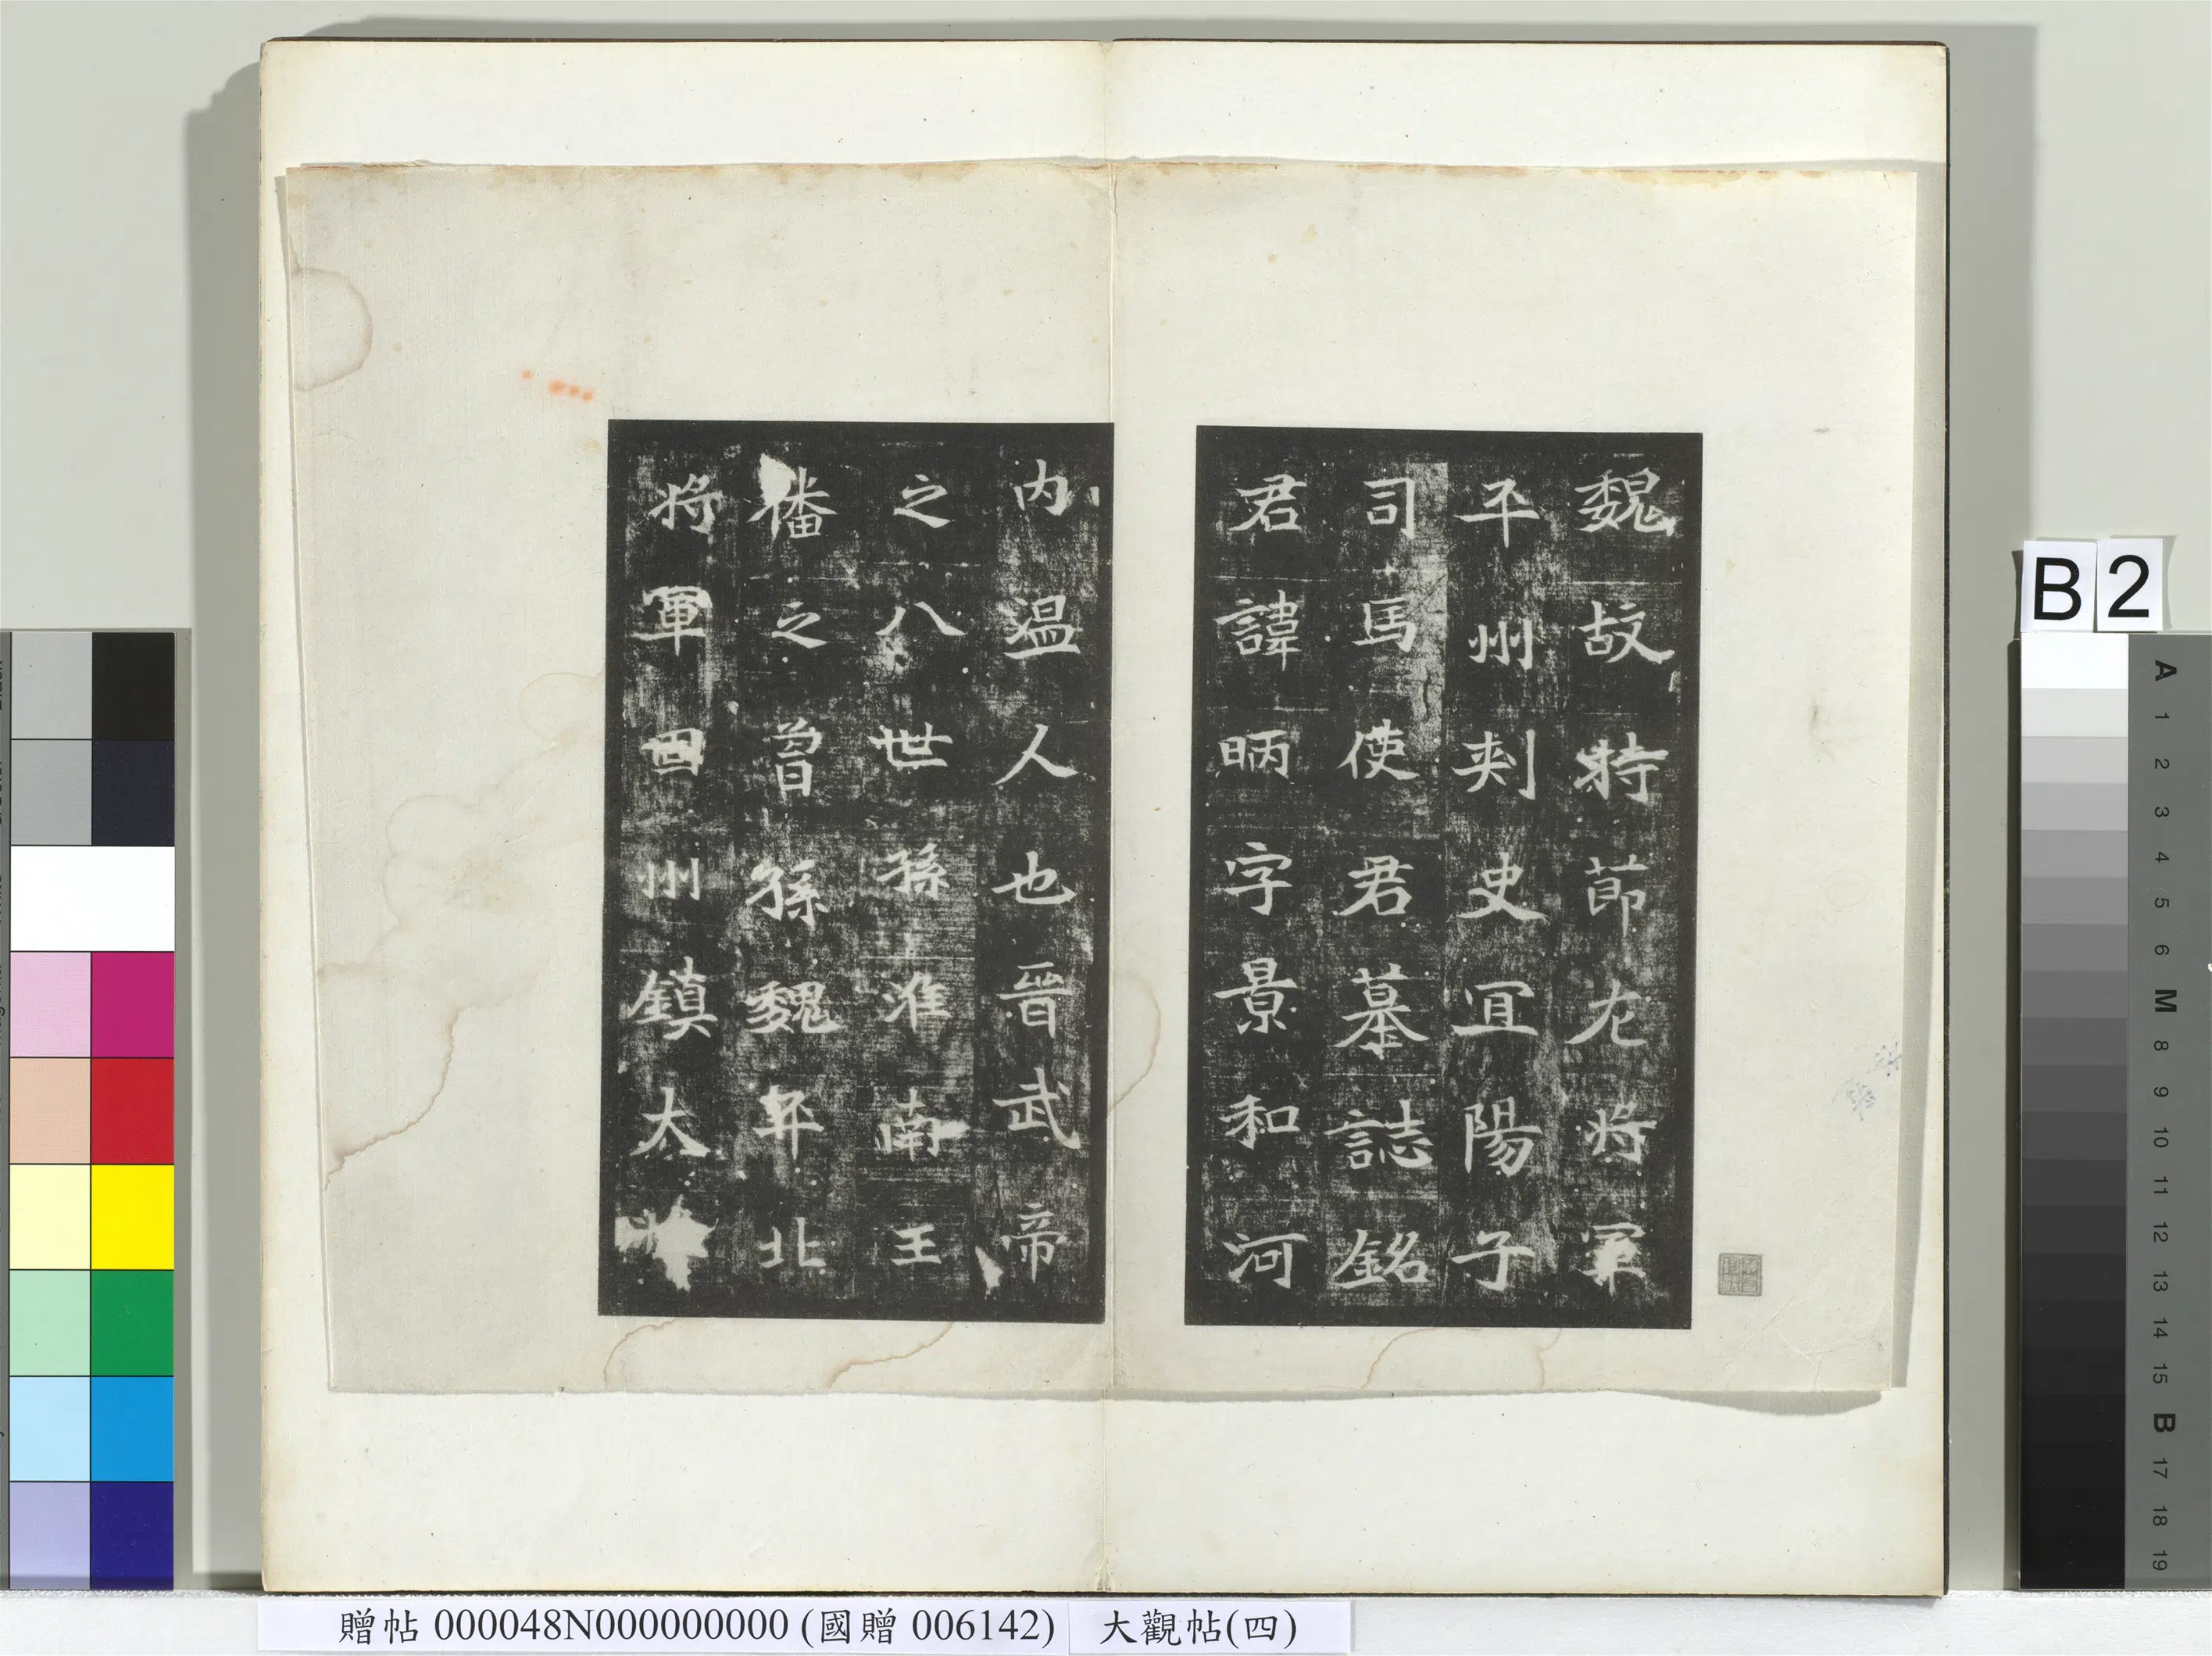 魏故持節左將軍
平州刺史宜陽子
司馬使君墓誌銘
君諱昞字景和河
内温人也晉武帝
之八世孫淮南王
播之曾孫魏平北
將軍固州鎮大將
B2
A 1 2 3 4 5 6 M 8 9 10 11 12 13 14 15 B 17 18 19
贈帖 000048N000000000 (國贈 006142) 大觀帖(四)